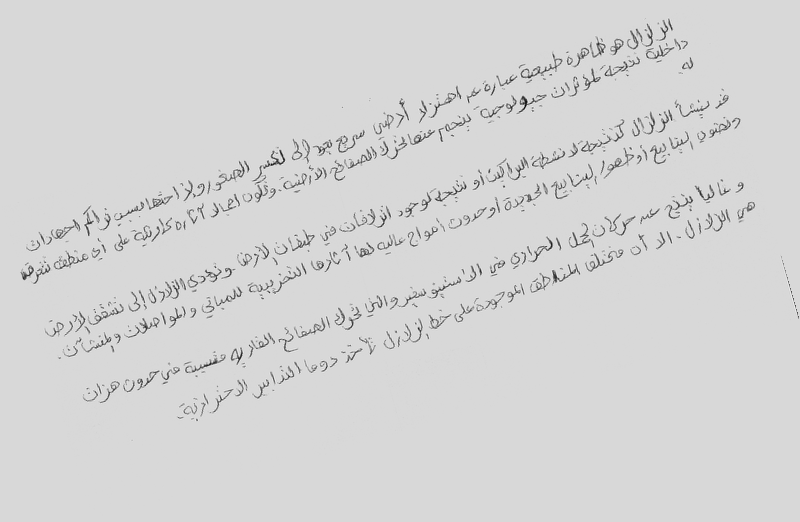 الزلزال هو ظاهرة طبيعية عبارة عن اهتزاز أرضي سريع يعود إلى تكسر الصخور وإزاحتها بسبب تراكم اجهادات
داخلية نتيجة لمؤثرات جيولوجية ينجم عنها تحرك الصفائح الأرضية. وتكون اعمال آثاره كارثية على أي منطقة تتعرض
له.
قد ينشأ الزلزال كنتيجة لأنشطة البراكين أو نتيجة لوجود انزلاقات في طبقات الأرض. وتؤدي الزلازل إلى تشقق الأرض
ونضوب الينابيع أو ظهور الينابيع الجديدة أو حدوث أمواج عالية لها آثارها التخريبية للمباني والمواصلات والمنشآت.
وغالباً ينتج عن حركات الحمل الحراري في الاستينوسفير والتي تحرك الصفائح القارية متسببة في حدوث هزات
هي الزلازل. الا أن مختلف المناطق الموجودة على خط الزلازل تأخذ دوما التدابير الاحترازية.